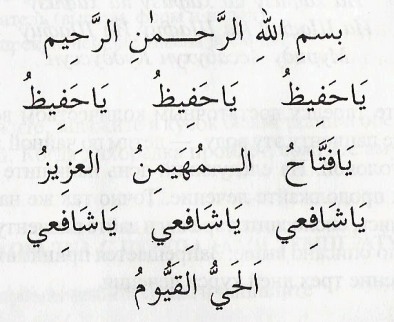 بِسمِ اللهِ الرَّحمٰنِ الرَّحِيمِ
يَاحَفِيظُ يَاحَفِيظُ يَاحَفِيظُ
يافَتَّاحُ المُهَيمِنُ العزِيز
ياشافِعي ياشافعي ياشافعي
الحيُّ القيُّومُ